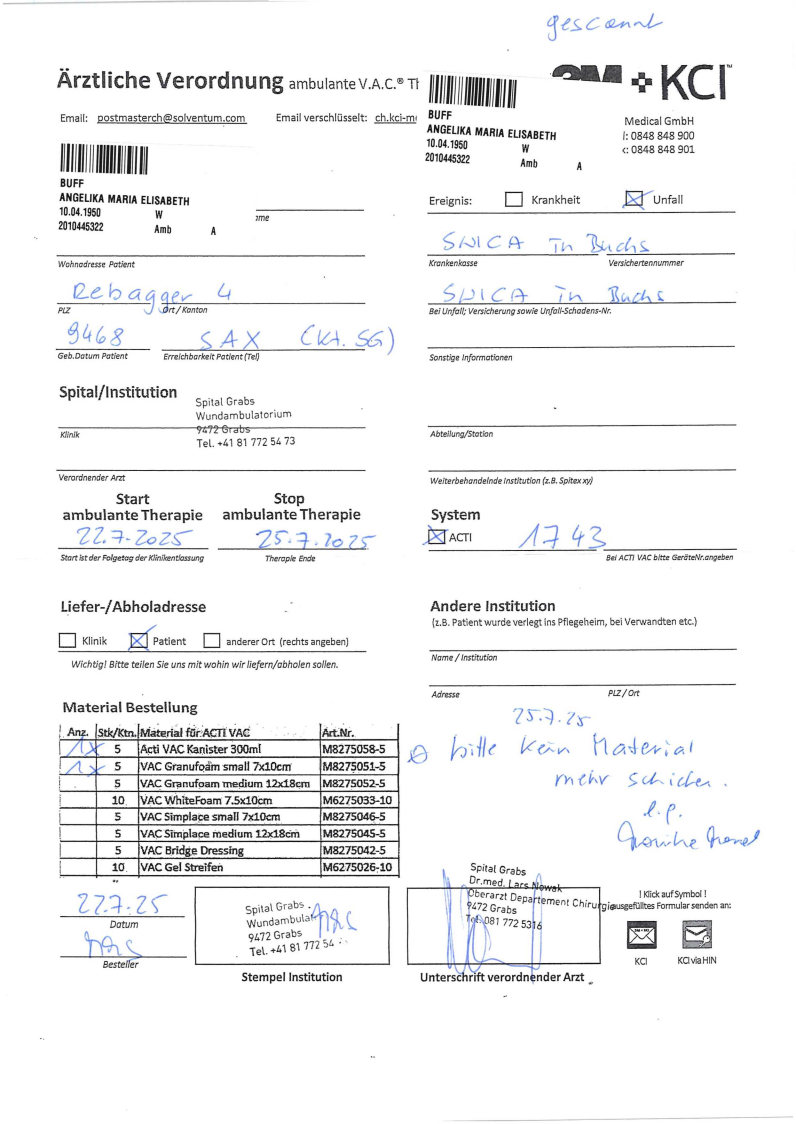 gescannt
Ärztliche Verordnung ambulante V.A.C.® Th
3M KCI™
Email: postmasterch@solventum.com Email verschlüsselt: ch.kci-m
Medical GmbH
: 0848 848 900
: 0848 848 901
BUFF
ANGELIKA MARIA ELISABETH
10.04.1950 W
2010445322 Amb A
BUFF
ANGELIKA MARIA ELISABETH
10.04.1950 W
2010445322 Amb A
ame
Wohnadresse Patient
Rebagger 4
PLZ Ort / Kanton
9468 SAX (Kt. SG)
Geb.Datum Patient Erreichbarkeit Patient (Tel)
Ereignis: Krankheit Unfall
SWICA in Buchs
Krankenkasse Versichertennummer
SWICA in Buchs
Bei Unfall; Versicherung sowie Unfall-Schadens-Nr.
Sonstige Informationen
Spital/Institution
Spital Grabs
Wundambulatorium
9472 Grabs
Tel. +41 81 772 54 73
Klinik
Abteilung/Station
Verordnender Arzt
Weiterbehandelnde Institution (z.B. Spitex xy)
Start
ambulante Therapie
22.7.2025
Start ist der Folgetag der Klinikentlassung
Stop
ambulante Therapie
25.7.2025
Therapie Ende
System
ACTI 1743
Bei ACTI VAC bitte GeräteNr.angeben
Liefer-/Abholadresse
Klinik Patient anderer Ort (rechts angeben)
Wichtig! Bitte teilen Sie uns mit wohin wir liefern/abholen sollen.
Andere Institution
(z.B. Patient wurde verlegt ins Pflegeheim, bei Verwandten etc.)
Name / Institution
Adresse PLZ / Ort
Material Bestellung
Anz. Stk/Ktn. Material für ACTI VAC Art.Nr.
1x 5 Acti VAC Kanister 300ml M8275058-5
1x 5 VAC Granufoam small 7x10cm M8275051-5
5 VAC Granufoam medium 12x18cm M8275052-5
10 VAC WhiteFoam 7.5x10cm M6275033-10
5 VAC Simplace small 7x10cm M8275046-5
5 VAC Simplace medium 12x18cm M8275045-5
5 VAC Bridge Dressing M8275042-5
10 VAC Gel Streifen M6275026-10
25.7.25
bitte kein Material
mehr schicken.
22.7.25
Datum
Besteller
Spital Grabs
Wundambulat
9472 Grabs
Tel. +41 81 772 54
Stempel Institution
Spital Grabs
Dr.med. Lars Nowak
Oberarzt Departement Chirurgie
9472 Grabs
Tel. 081 772 5316
Unterschrift verordnender Arzt
! Klick auf Symbol !
ausgefülltes Formular senden an:
KCI KCI via HIN